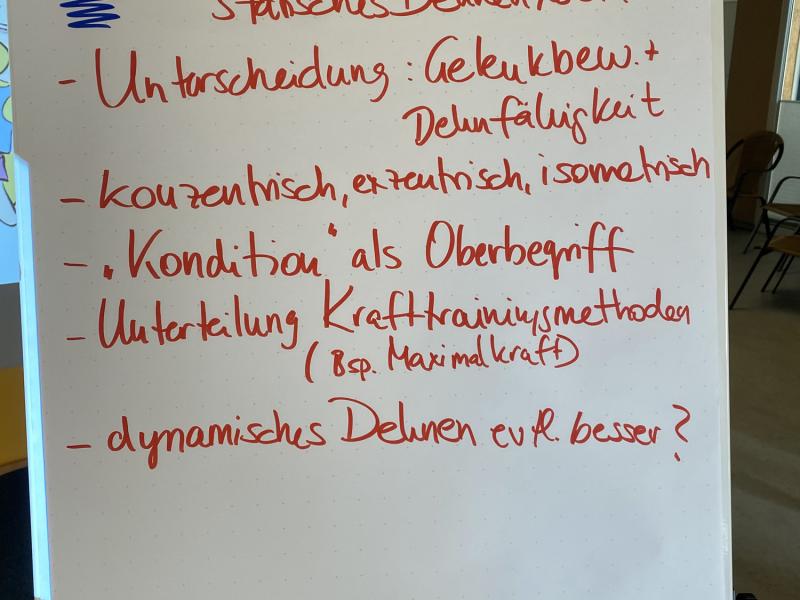 statisches Dehnen
- Unterscheidung: Gelenkbew. +
Dehnfähigkeit
- konzentrisch, exzentrisch, isometrisch
- „Kondition" als Oberbegriff
- Unterteilung Krafttrainingsmethoden
(Bsp. Maximalkraft)
- dynamisches Dehnen evtl. besser?